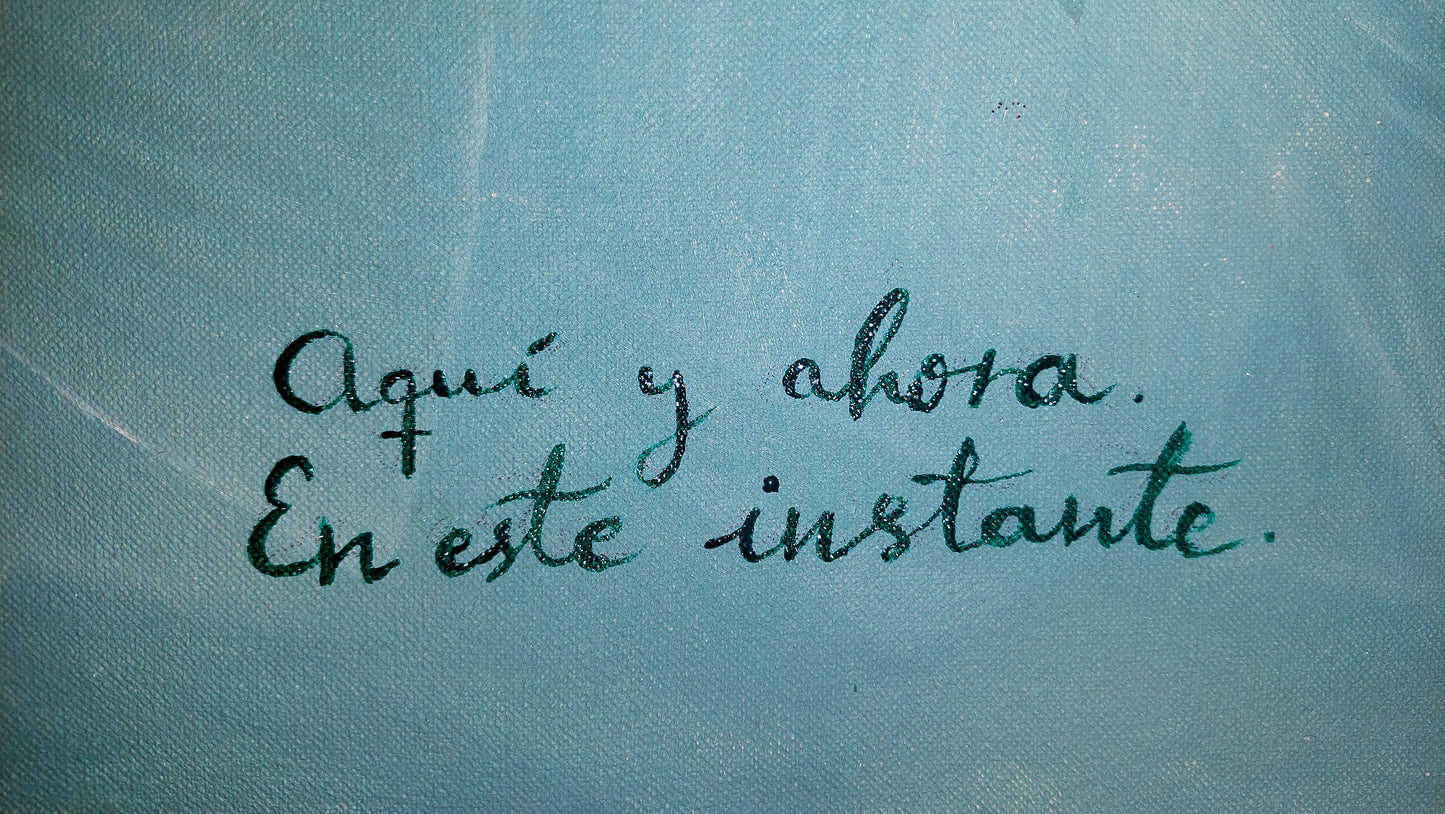 Aquí y ahora.
En este instante.